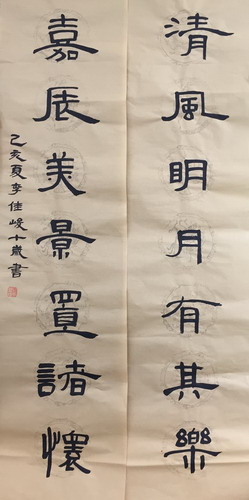 清風明月有其樂
嘉辰美景置諸懷
己亥夏李佳峻十歲書